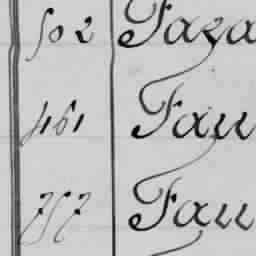 502 Faza
461 Fau
757 Fau